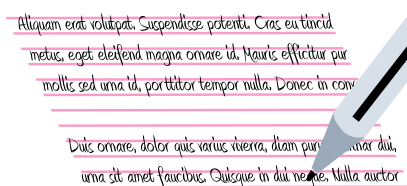 Aliquam erat volutpat. Suspendisse potenti. Cras eu tincid
metus, eget eleifend magna ornare id. Mauris efficitur pur
mollis sed urna id, porttitor tempor nulla. Donec in
Duis ornare, dolor quis varius viverra, diam dui,
urna sit amet faucibus. Quisque in dui Nulla auctor